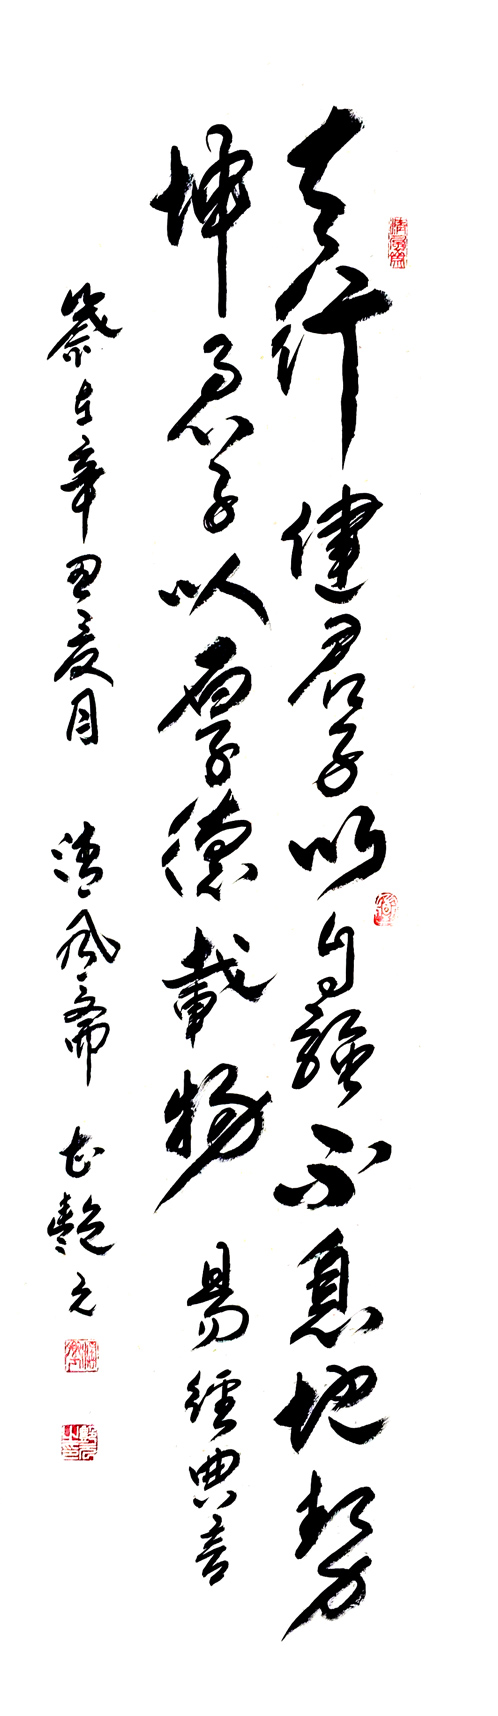 天行健君子以自强不息地势
坤君子以厚德载物 易经典言
岁在辛丑夏月 清风斋 艳元